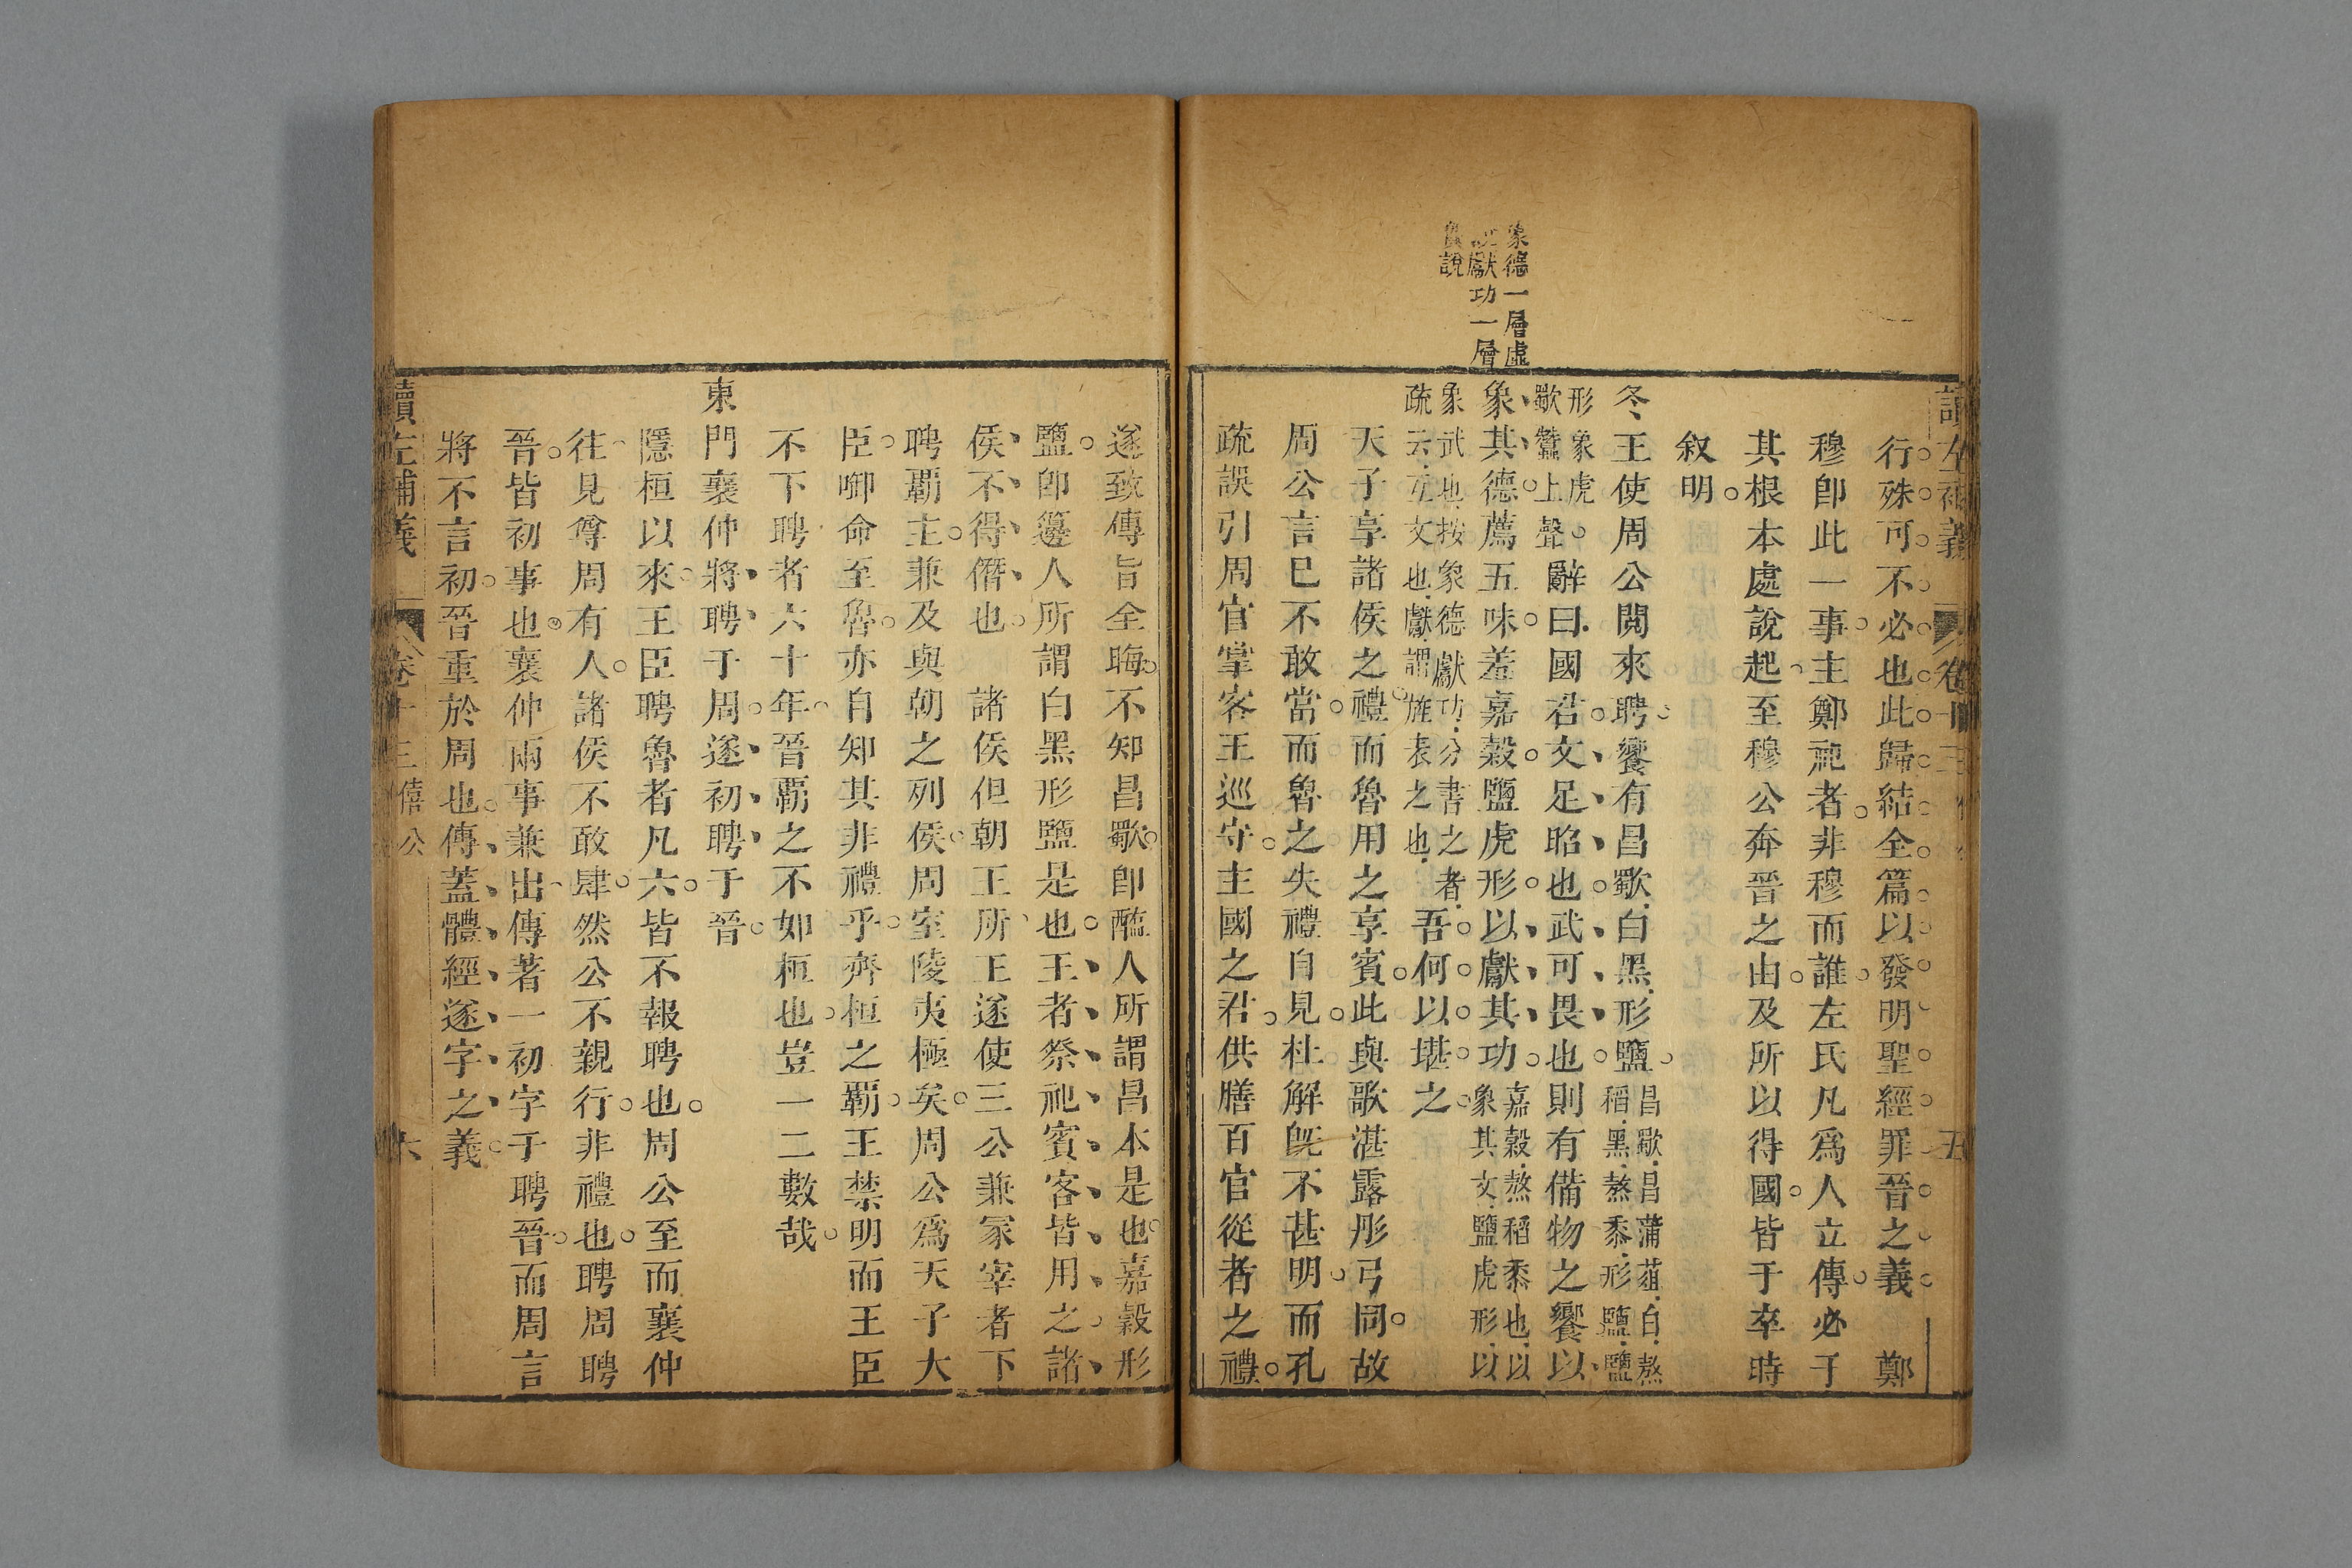 讀左補義
卷十三
五
行殊可不必也此歸結全篇以發明聖經罪晉之義　鄭
穆卽此一事主鄭祀者非穆而誰左氏凡爲人立傳必于
其根本處說起至穆公奔晉之由及所以得國皆于卒時
叙明
冬王使周公閱來聘饗有昌歜白黑形鹽
昌歜昌蒲葅白熬
稻黑熬黍形鹽鹽
形象虎
歜蠶上聲
辭曰國君文足昭也武可畏也則有備物之饗以
象其德薦五味羞嘉穀鹽虎形以獻其功
嘉穀熬稻黍也以
象其文鹽虎形以
象武也按象德獻功分書之者
疏云互文也獻謂旌表之也
吾何以堪之
天子享諸侯之禮而魯用之享賓此與歌湛露彤弓同故
周公言已不敢當而魯之失禮自見杜解旣不甚明而孔
疏誤引周官掌客王巡守主國之君供膳百官從者之禮
象德一層虛
獻功一層
說
遂致傳旨全晦不知昌歜卽醢人所謂昌本是也嘉穀形
鹽卽籩人所謂白黑形鹽是也王者祭祀賓客皆用之諸
侯不得僭也　諸侯但朝王所王遂使三公兼冢宰者下
聘覇主兼及與朝之列侯周室陵夷極矣周公爲天子大
臣啣命至魯亦自知其非禮乎齊桓之覇王禁明而王臣
不下聘者六十年晉覇之不如桓也豈一二數哉
東門襄仲將聘于周遂初聘于晉
隱桓以來王臣聘魯者凡六皆不報聘也周公至而襄仲
往見尊周有人諸侯不敢肆然公不親行非禮也聘周聘
晉皆初事也襄仲兩事兼出傳著一初字于聘晉而周言
將不言初晉重於周也傳蓋體經遂字之義
讀左補義
卷十三僖公
六